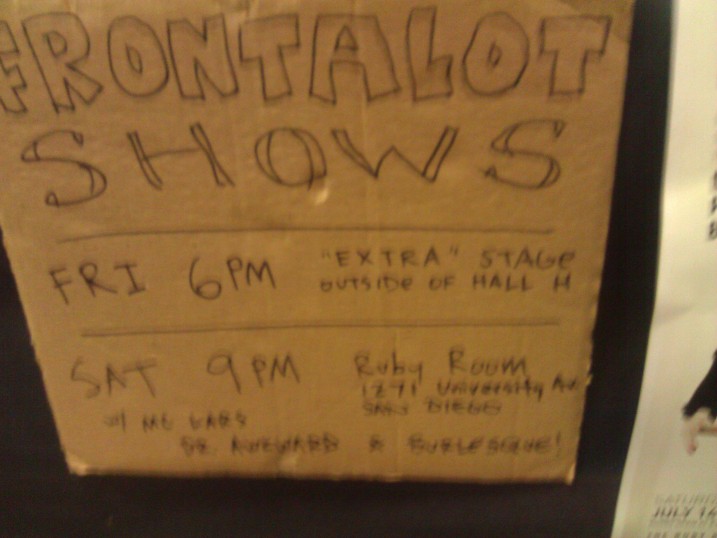 FRONTALOT
SHOWS
FRI 6PM "EXTRA" STAGE
OUTSIDE OF HALL H
SAT 9PM Ruby Room
1271 University Av
SAN DIEGO
w/ MC LARS
DR. AWKWARD & BURLESQUE!
SATURD
JULY 12